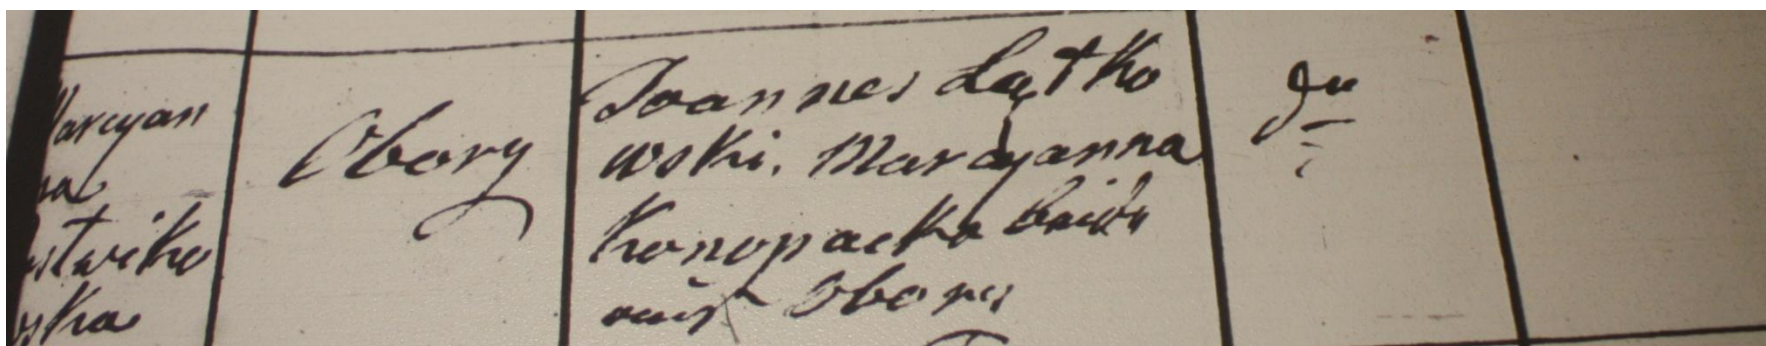 Marcyan
na
Obory
Joannes Lątko
wski. Maryanna
Konopacka beide
aus Obory
ja